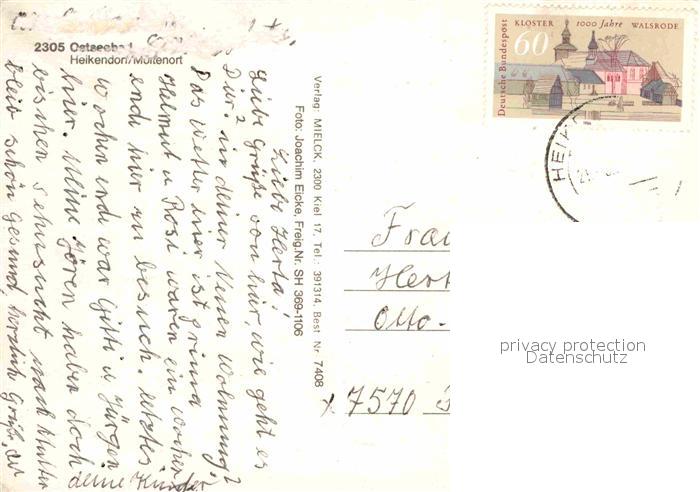 2305 Ostseebad
Heikendorf/Möltenort
Verlag: MIELCK, 2300 Kiel 17, Tel.: 391314, Best Nr. 7408
Foto: Joachim Eicke, Freig.Nr. SH 369-1106
Liebe Herta!
Liebe Grüße von hier, wie geht es
Dir? in deiner Neuen Wohnung?
Das Wetter hier ist prima
Helmut u Rosi waren ein Wochen
ende hier zu besuch. letztes
wochen ende war Gitti u Jürgen
hier. Meine Gören haben doch
bisschen sehnsucht nach Mutter
bleib schön Gesund, Herzlich Grüßt, dich
deine Kinder
KLOSTER 1000 Jahre WALSRODE
60
Deutsche Bundespost
HEIK
Frau
Hert
Otto-
7570
privacy protection
Datenschutz